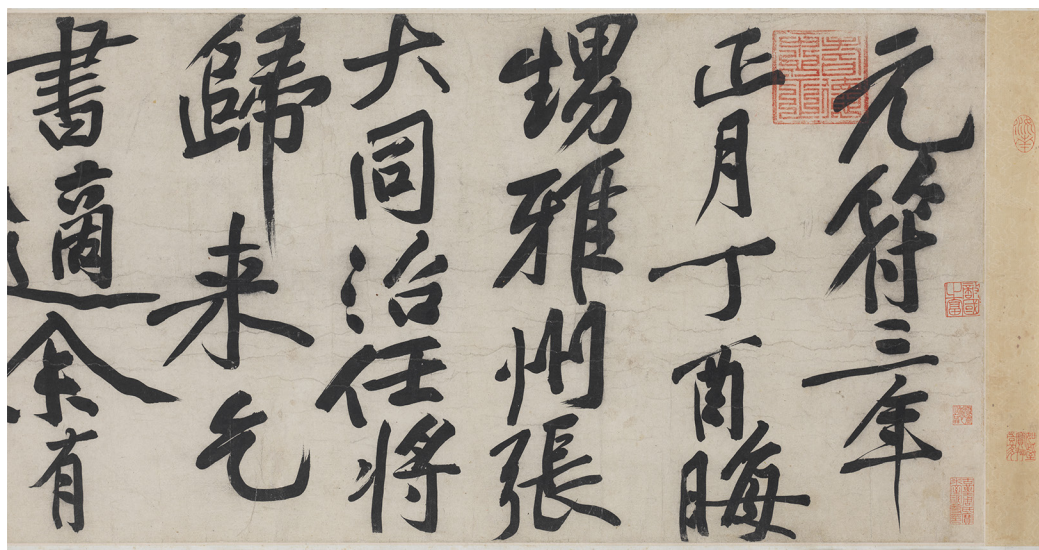 元符三年
正月丁酉晦
甥雅州張
大同治任將
歸来乞
書適余有